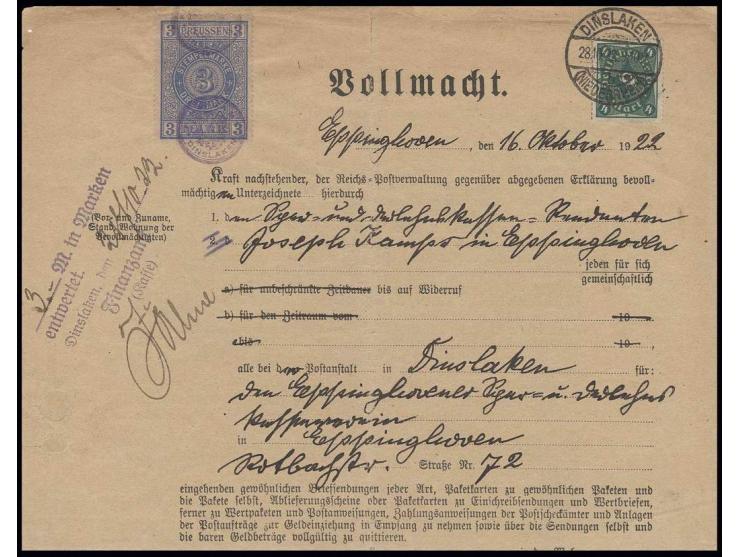 PREUSSEN
STEMPELMARKE
3
3 MARK 3
DINSLAKEN
DINSLAKEN
28.
(NIEDERRHEIN)
4 Mark 4
Vollmacht.
Eppinghoven, den 16. Oktober 1922
Kraft nachstehender, der Reichs-Postverwaltung gegenüber abgegebenen Erklärung bevoll-
mächtigen Unterzeichnete hierdurch
(Vor- und Zuname,
Stand, Wohnung der
Bevollmächtigten)
1. den Spar- und Darlehnskassen-Rendanten
2. Joseph Kamps in Eppinghoven
jeden für sich
gemeinschaftlich
3.- M. in Marken
entwertet
Dinslaken, den 28/10 22.
Finanzamt
(Kasse)
a) für unbeschränkte Zeitdauer bis auf Widerruf
b) für den Zeitraum vom 19
bis 19 ,
alle bei der Postanstalt in Dinslaken für:
den Eppinghovener Spar- u. Darlehns
kassenverein
in Eppinghoven
Rotbachstr. Straße Nr. 72
eingehenden gewöhnlichen Briefsendungen jeder Art, Paketkarten zu gewöhnlichen Paketen und
die Pakete selbst, Ablieferungsscheine oder Paketkarten zu Einschreibsendungen und Wertbriefen,
ferner zu Wertpaketen und Postanweisungen, Zahlungsanweisungen der Postscheckämter und Anlagen
der Postaufträge zur Geldeinziehung in Empfang zu nehmen sowie über die Sendungen selbst und
die baren Geldbeträge vollgültig zu quittieren.